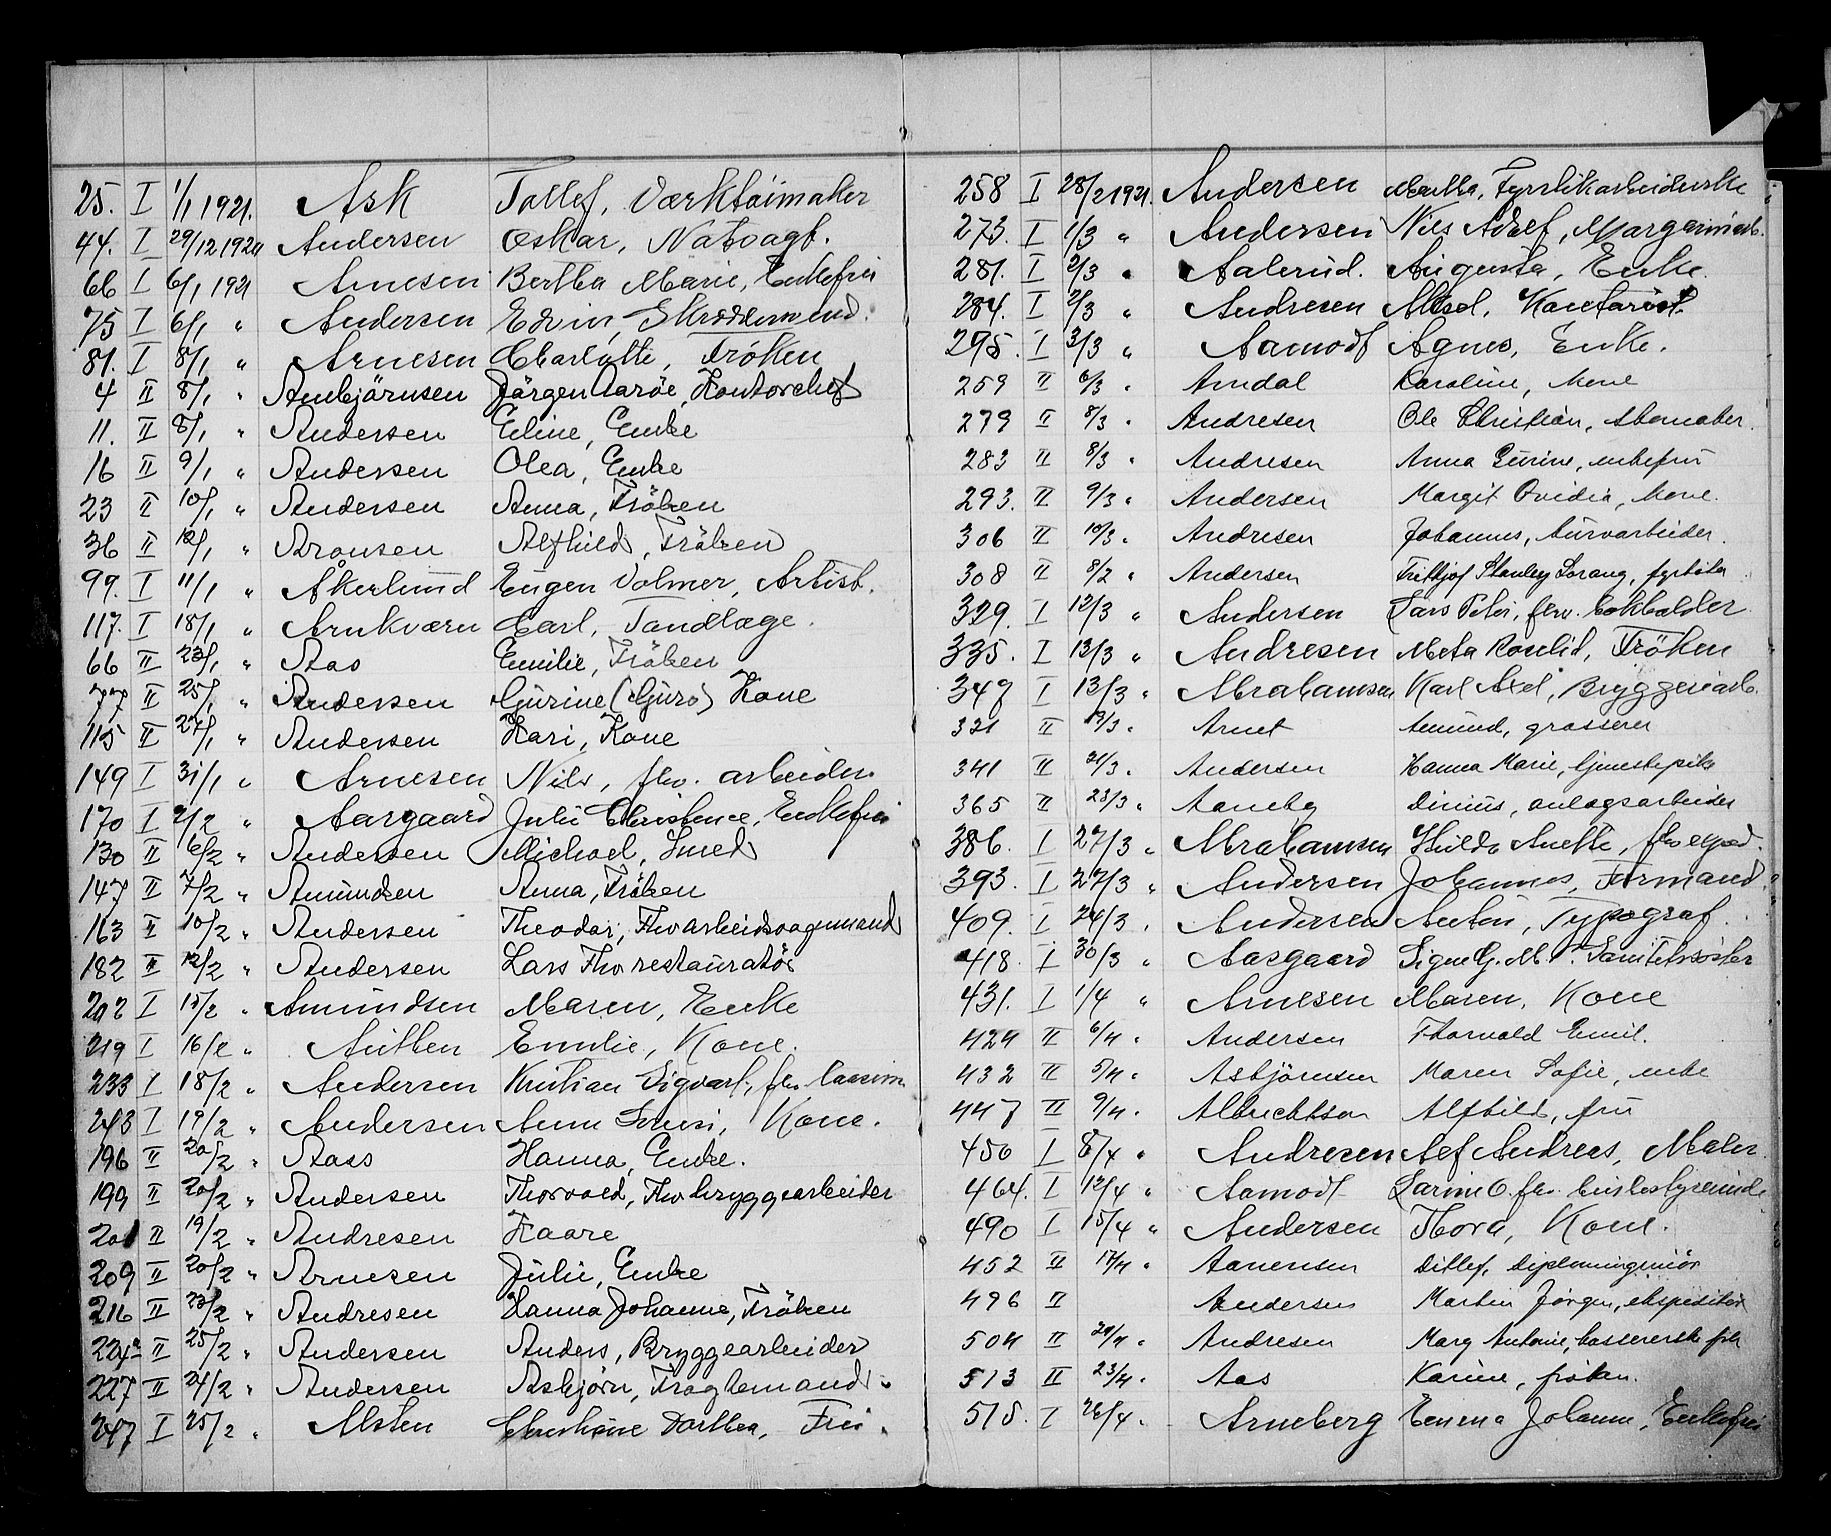 25. I 1/1 1921. Ask Tollef, Værktöimaker
44. I 29/12 1920 Andersen Oskar, Natvagt.
66 I 6/1 1921 Arnesen Bertha Marie, Enkefru
75 I 6/1 " Andersen Edvin, Skræddersvend.
81. I 8/1 " Arnesen Charlotte, Fröken
4 II 8/1 " Arnbjörnsen Jörgen Aaröe, Kontorchef
11. II 8/1 " Andersen Eline, Enke
16 II 9/1 " Andersen Olea, Enke
23 II 10/1 " Andersen Anna, Fröken
36 II 12/1 " Aronsen Alfhild, Fröken
99. I 11/1 " Åkerlund Eugen Volmer, Artist.
117. I 18/1 " Arnkværn Carl, Tandlæge.
66 II 23/1 " Aas Emilie, Fröken
77 II 25/1 " Andersen Gurine (Guro) Kone
115 II 27/1 " Andersen Kari, Kone
149 I 31/1 " Arnesen Nils, fhv. arbeider
170 I 2/2 " Aargaard Julie Christence, Enkefru
130 II 6/2 " Andersen Michael, Smed
147 II 7/2 " Amundsen Anna, Fröken
163 II 10/2 " Andersen Theodor, Fhv arbeidsvognmand
182 II 12/2 " Andersen Lars Fhv restauratör
202 I 15/2 " Amundsen Maren, Enke
219 I 16/2 " Anthen Emilie, Kone.
233 I 18/2 " Andersen Kristian Sigvart, fhv.
243 I 19/2 " Andersen Anne Lovise, Kone.
196 II 20/2 " Aass Hanna, Enke.
199 II 20/2 " Andersen Thorvald, Fhv bryggearbeider
201 II 19/2 " Andresen Kaare
209 II 20/2 " Arnesen Julie, Enke
216 II 23/2 " Andresen Hanna Johanne, Fröken
224a II 25/2 " Andersen Anders, Bryggearbeider
227 II 24/2 " Andersen Asbjörn, Fragtemand.
247 I 25/2 " Alsten Christiane Dorthea, Fru.
258 I 28/2 1921. Andersen Martha, Fyrstikarbeiderske
273. I 1/3 " Andersen Nils Adolf, Margarinarb.
281. I 2/3 " Aalerud. Augusta, Enke.
284. I 2/3 " Andresen Aksel, Kontorist.
295. I 3/3 " Aamodt Agnes, Enke.
259 II 6/3 " Arndal Karoline, kone
279 II 8/3 " Andresen Ole Christian, skomaker.
283 II 8/3 " Andresen Anna Gurine, enkefru
293. II 9/3 " Andersen Margit Ovidia, kone.
306 II 10/3 " Andresen Johannes, kurvarbeider.
308 II 8/2 " Andersen Fritkjof Stanley Sorang, fyrböter
329. I 12/3 " Andersen Lars Peter, fhv. bokholder
335. I 13/3 " Andresen Meta Roselid, Fröken
347 I 13/3 " Abrahamsen Karl Axel, Bryggeriarb.
321 II 19/3 " Arnet Amund, grosserer
341 II 21/3 " Andersen Hanna Marie, tjenestepike
365 II 23/3 " Aaneby Dinius, anlægsarbeider
386. I 27/3 " Abrahamsen Hilda Anette, fhv exped.
393. I 27/3 " Andersen Johannes, Formand
409. I 24/3 " Andersen Anton, Typograf.
418. I 30/3 " Aasgaard Signe G. M. Sanitetssöster
431. I 1/4 " Arnesen Maren, Kone
424 II 6/4 " Andersen Thorvald Emil.
432 II 5/4 " Asbjörnsen Maren Sofie, enke
447 II 9/4 " Albrechtson Alfhild, fru
450 I 8/4 " Andresen Alf Andreas, Maler
464. I 12/4 " Aamodt Karine O. fhv.
490 I 15/4 " Andersen Thora, Kone.
452 II 17/4 " Aanensen Ditlef, diplomingeniör
496 II Andersen Martin Jörgen, ekspeditör
504 II 20/4 " Andresen Mary Antonie, kassererske frk
513 II 23/4 " Aas Karine, fröken.
515. I 26/4 " Arneberg Emma Johanne, Enkefru